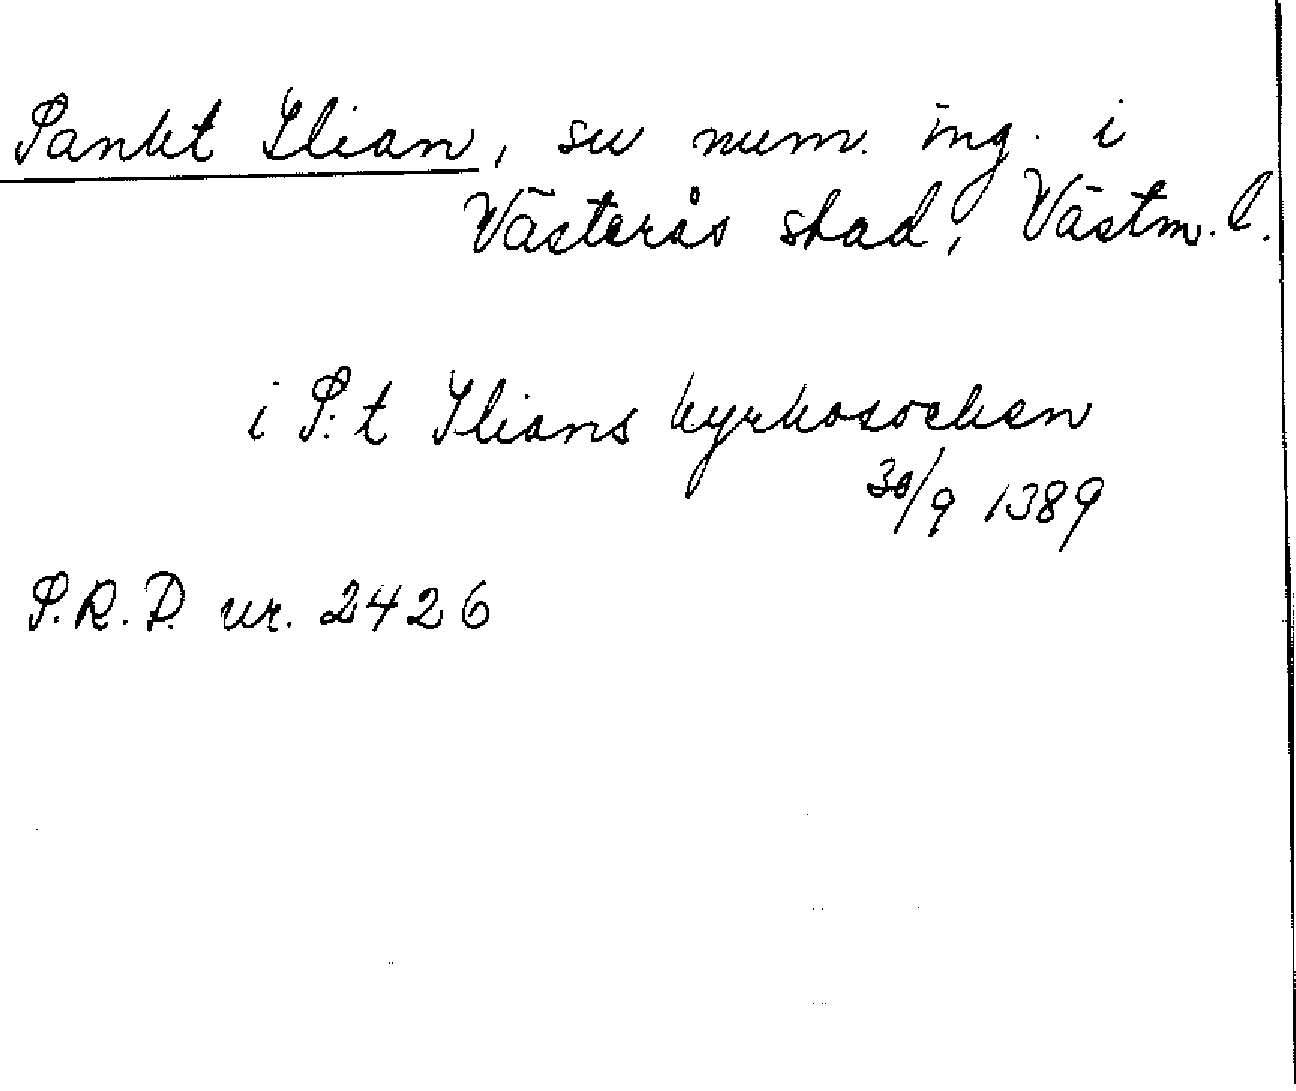 Sankt Ilian, sn num. ing. i
Västerås stad, Västm. l.
i S:t Ilians kyrkosocken
30/9 1389
S.R.P. nr. 2426